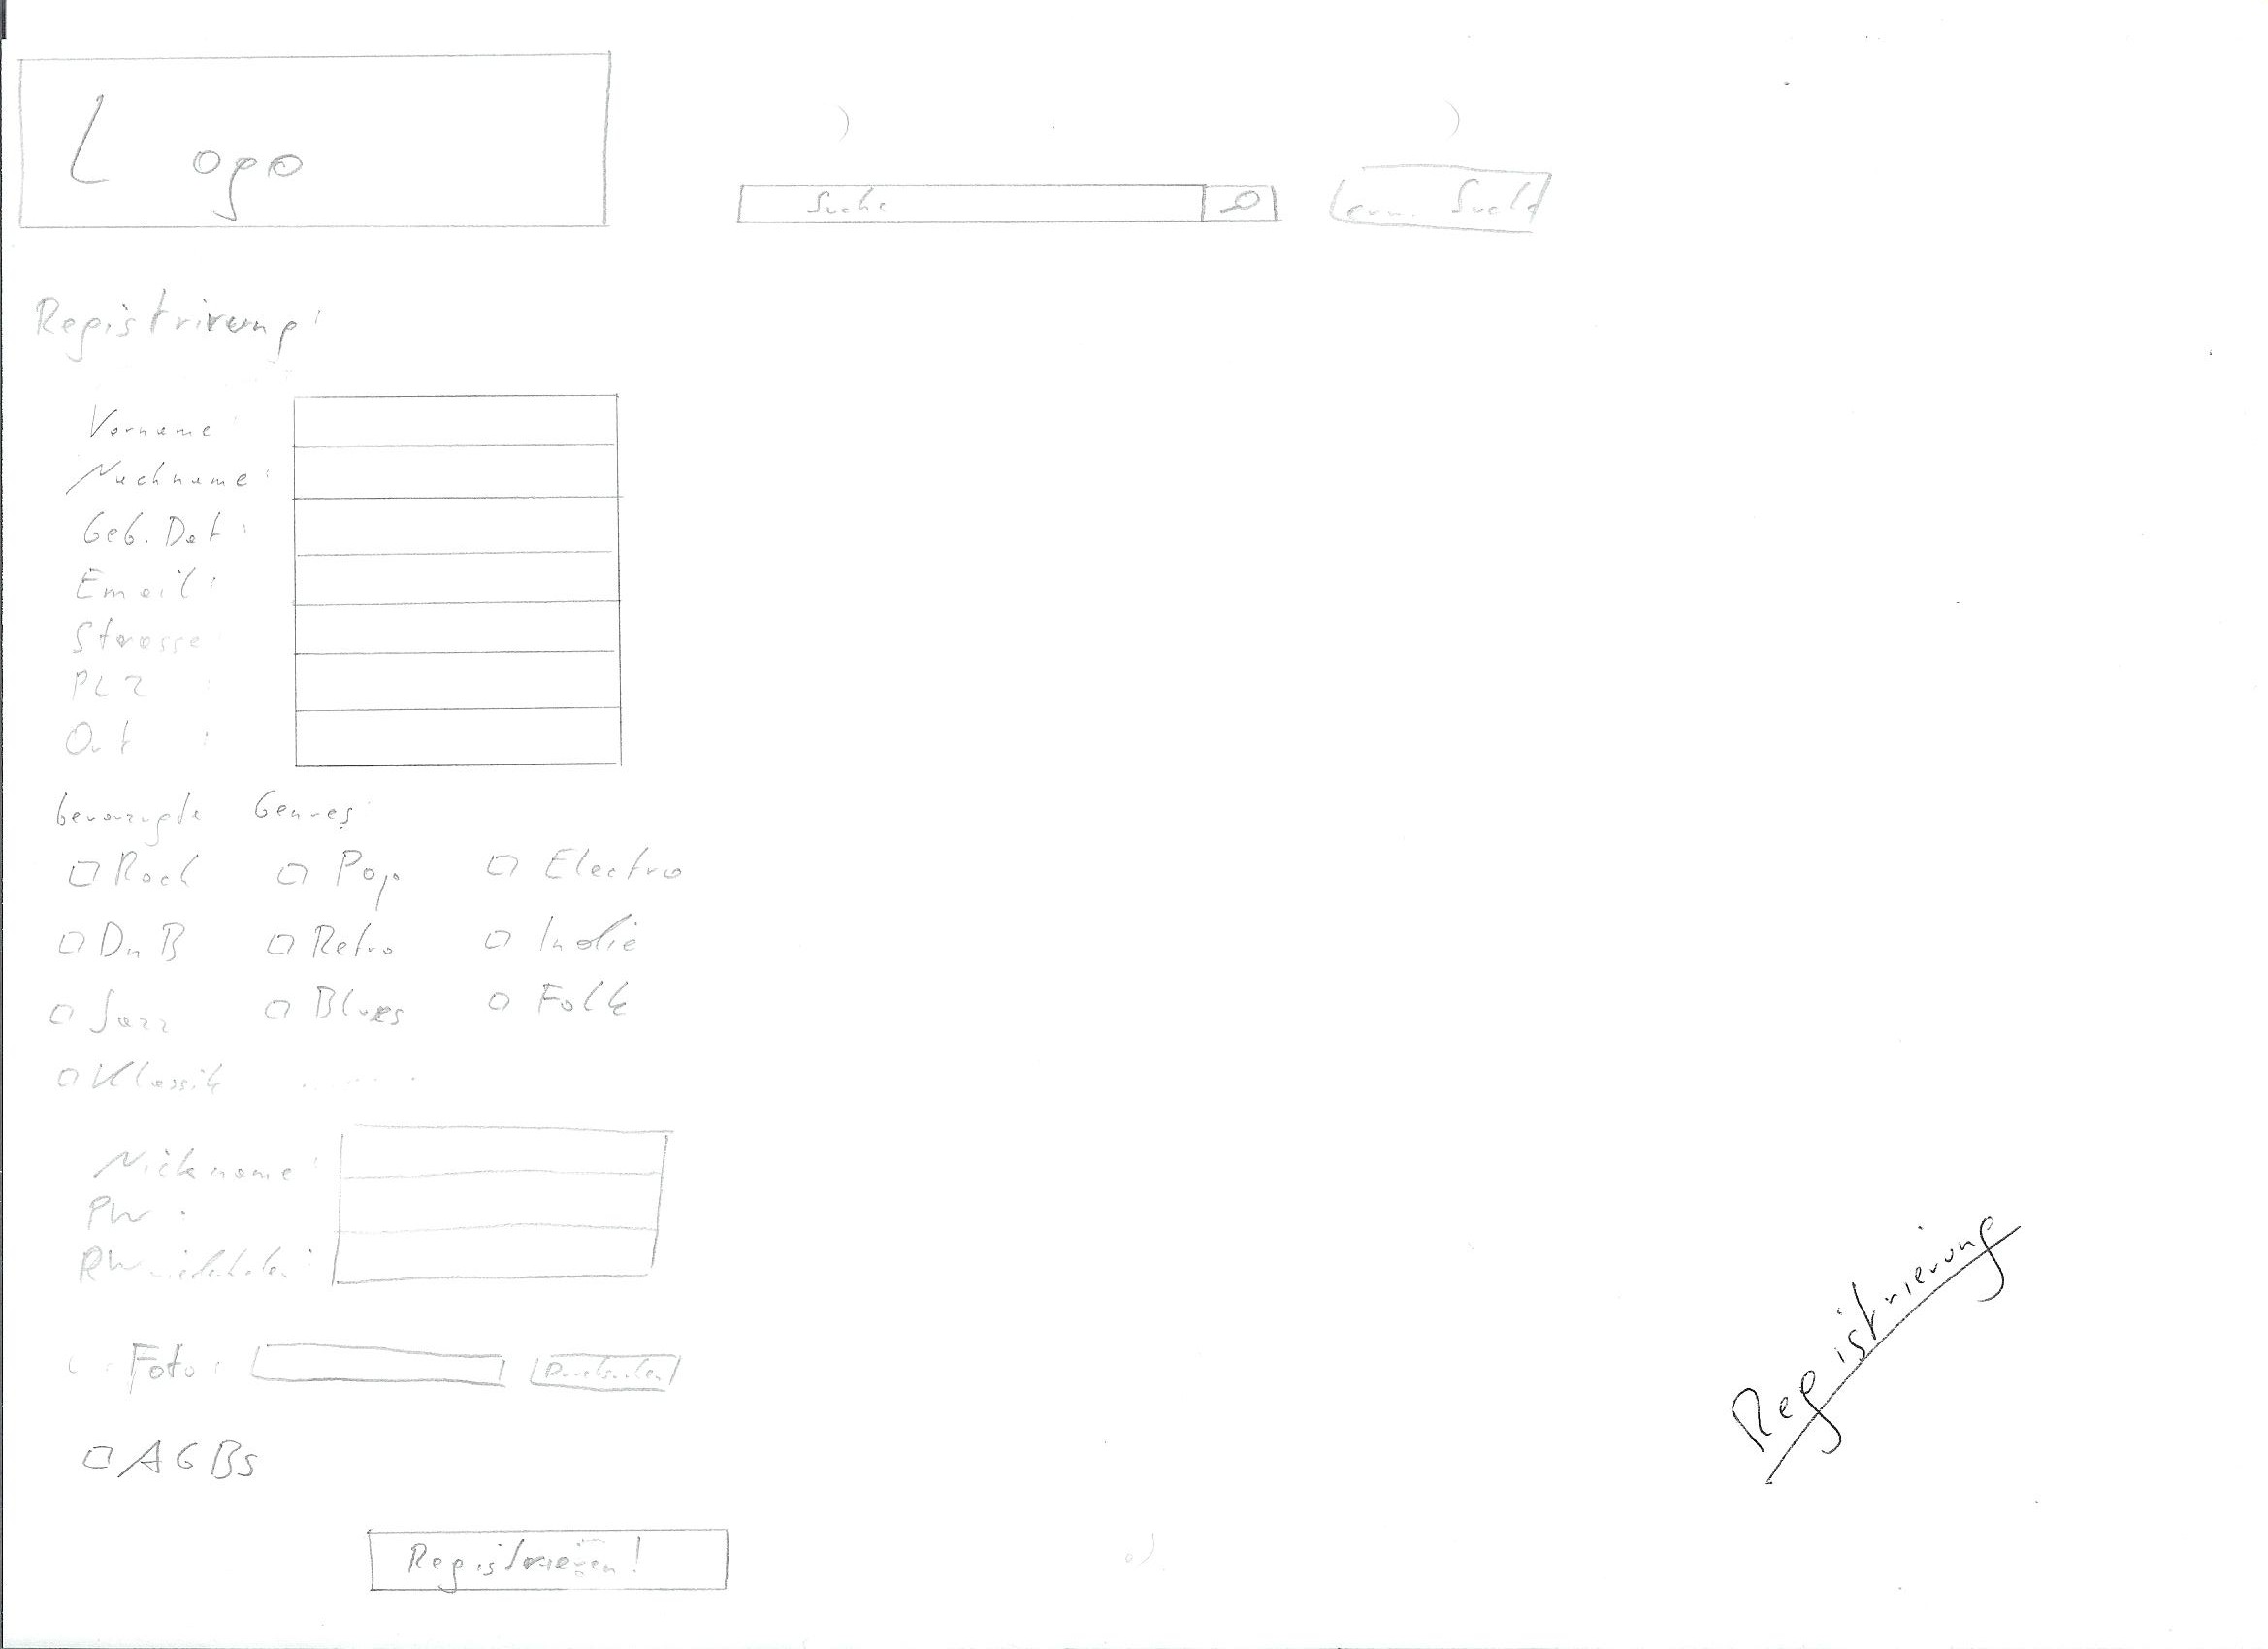 Logo
Suche
erw. Suche
Registrirung:
Vorname:
Nachname:
Geb. Dat:
Email:
Strasse
PLZ :
Ort :
bevorzugte Genres:
Rock Pop Electro
DnB Retro Indie
Jazz Blues Folk
Klassik .......
Nickname:
PW :
PW wiederholen:
Foto: Durchsuchen
AGBs
Registrieren!
Registrierung